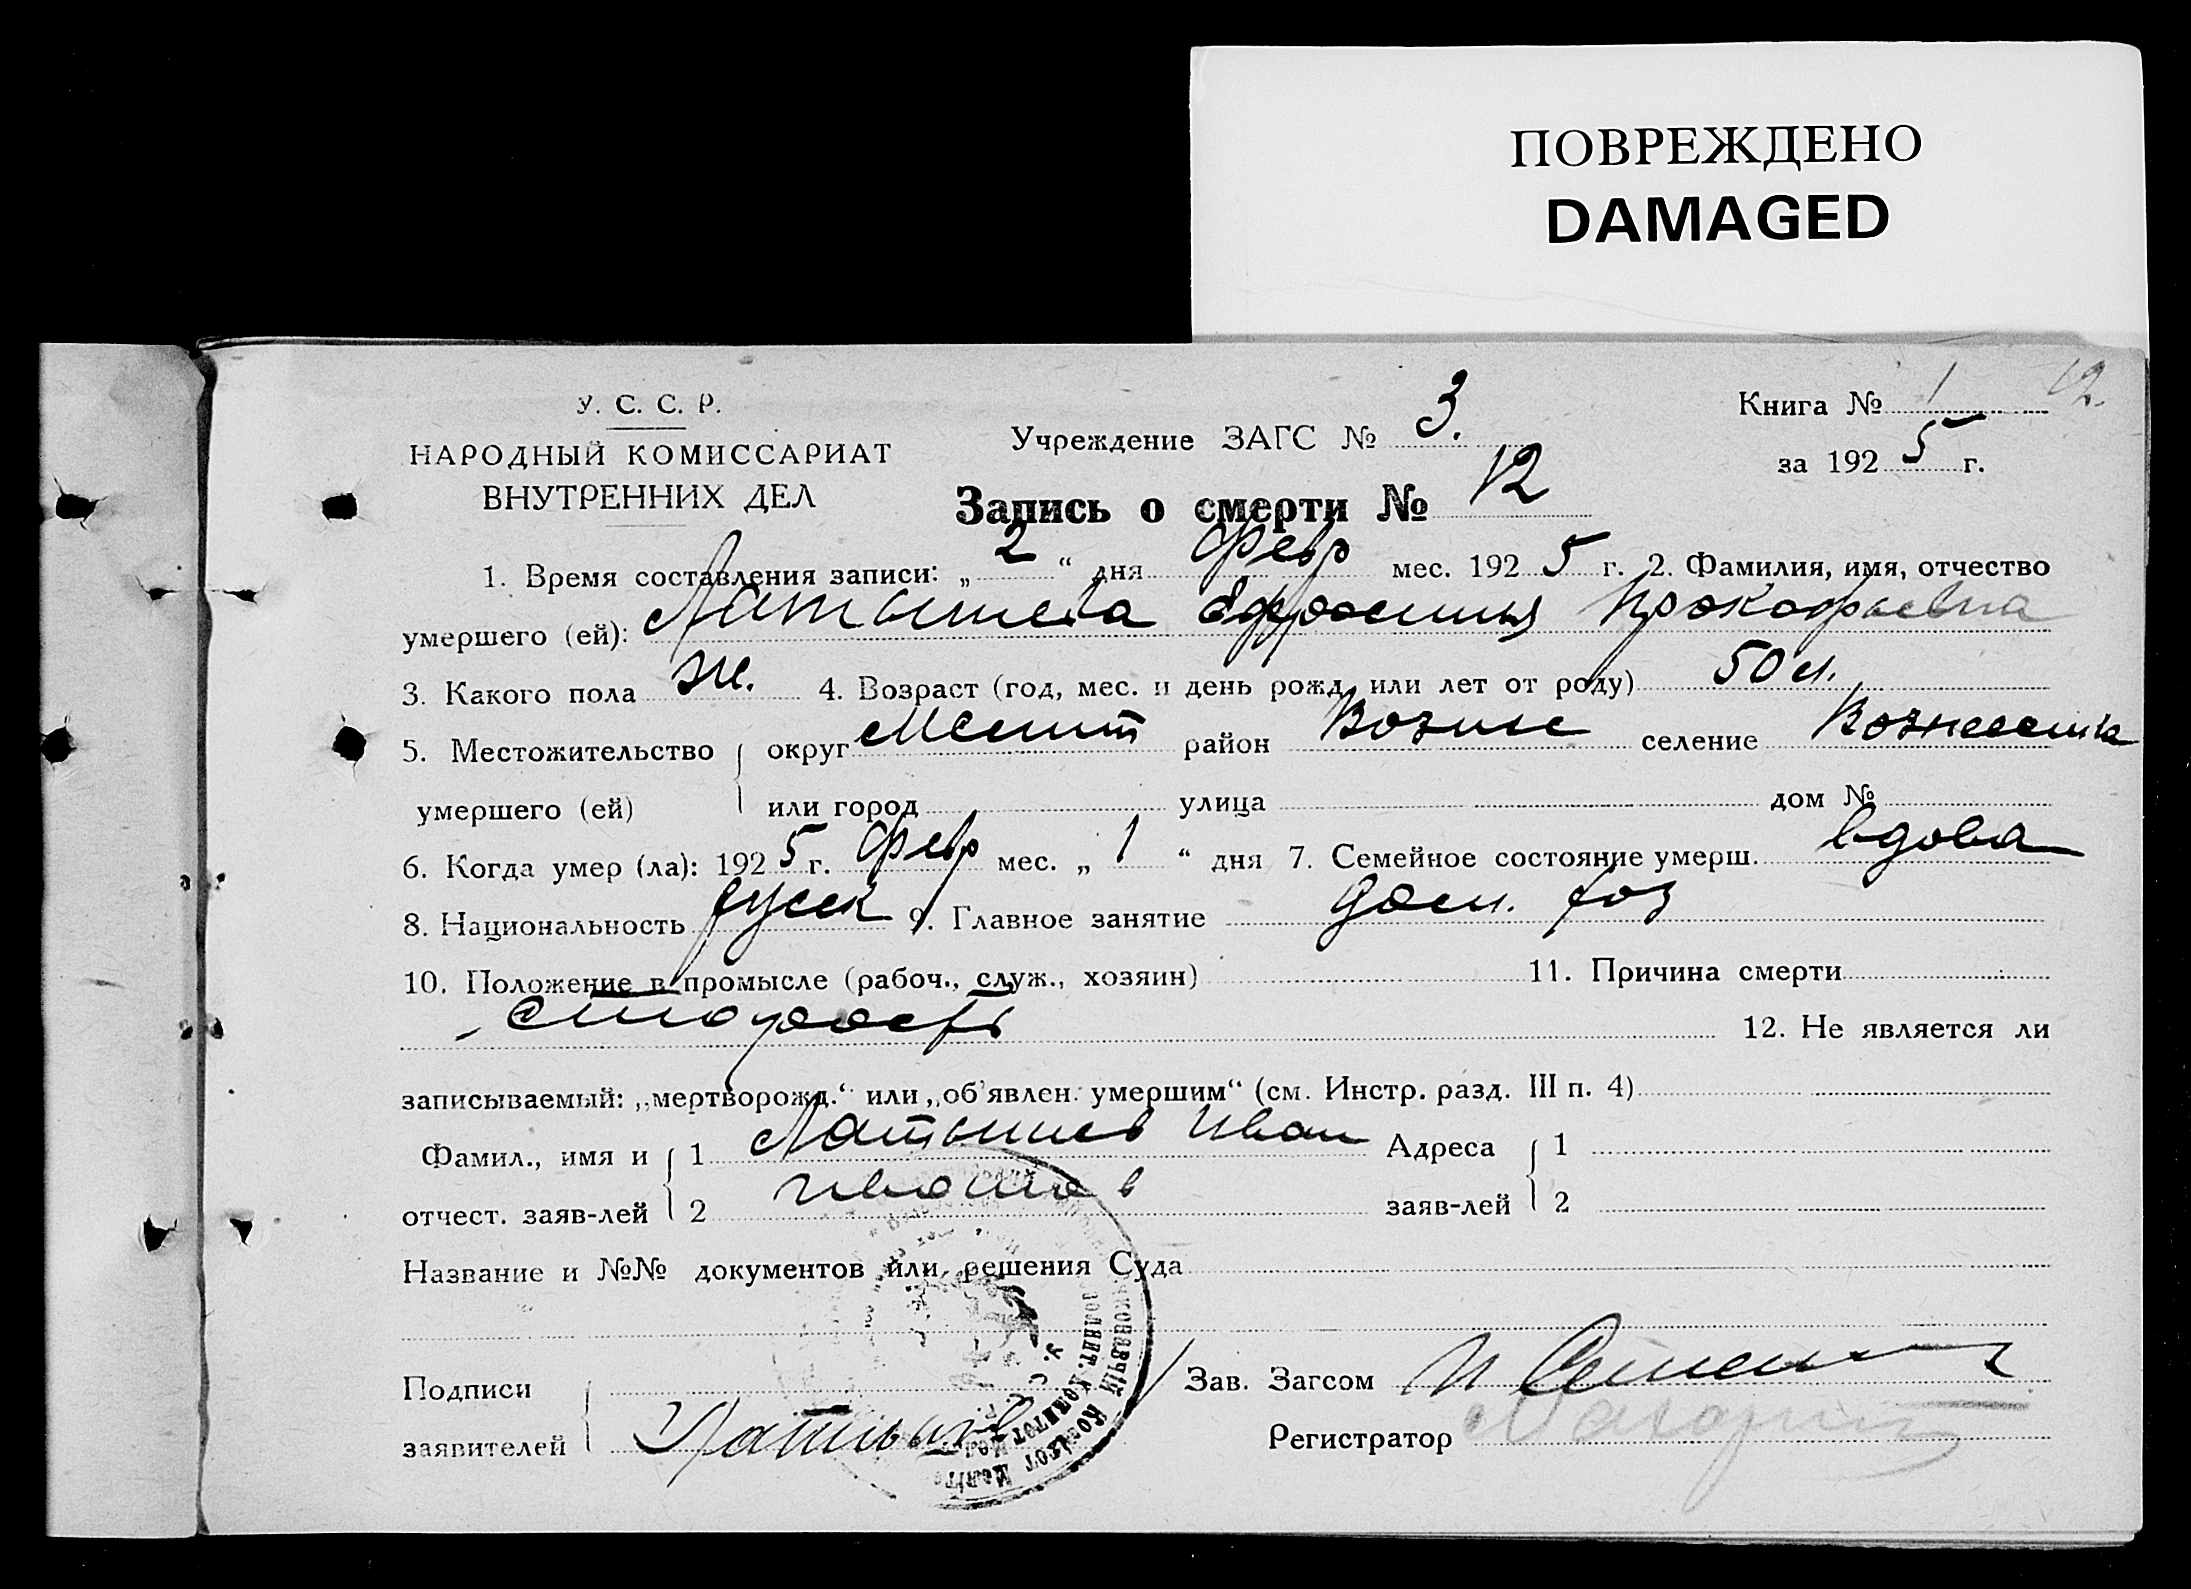 ПОВРЕЖДЕНО
DAMAGED
12.
У. С. С. Р.
НАРОДНЫЙ КОМИССАРИАТ
ВНУТРЕННИХ ДЕЛ
Учреждение ЗАГС № 3.
Книга № 1
за 1925 г.
Запись о смерти № 12
1. Время составления записи: „2“ дня Февр мес. 1925 г. 2. Фамилия, имя, отчество
умершего (ей): Латышева Ефросинья Прокофьевна
3. Какого пола ж. 4. Возраст (год, мес. и день рожд. или лет от роду) 50 л.
5. Местожительство округ Мелит район Возне селение Вознесенка
умершего (ей) или город улица дом №
6. Когда умер (ла): 1925 г. Февр мес. „1“ дня 7. Семейное состояние умерш. вдова
8. Национальность русск 9. Главное занятие дом. хоз
10. Положение в промысле (рабоч., служ., хозяин) 11. Причина смерти
старость 12. Не является ли
записываемый: „мертворожд.“ или „об'явлен. умершим“ (см. Инстр. разд. III п. 4)
Фамил., имя и 1 Латышев Иван Адреса 1
отчест. заяв-лей 2 заяв-лей 2
Название и №№ документов или решения Суда
Подписи Зав. Загсом
заявителей Латышев Регистратор
У. С. С. Р.